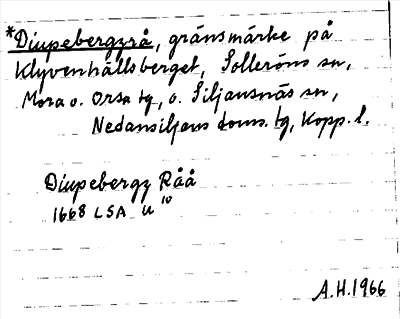 *Diupebergzrå, gränsmärke på
Klyvenhällsberget, Solleröns sn,
Mora o. Orsa tg, o. Siljansnäs sn,
Nedansiljans doms. tg, Kopp. l.
Diupebergz Råå
1668 LSA U 10
A.H. 1966